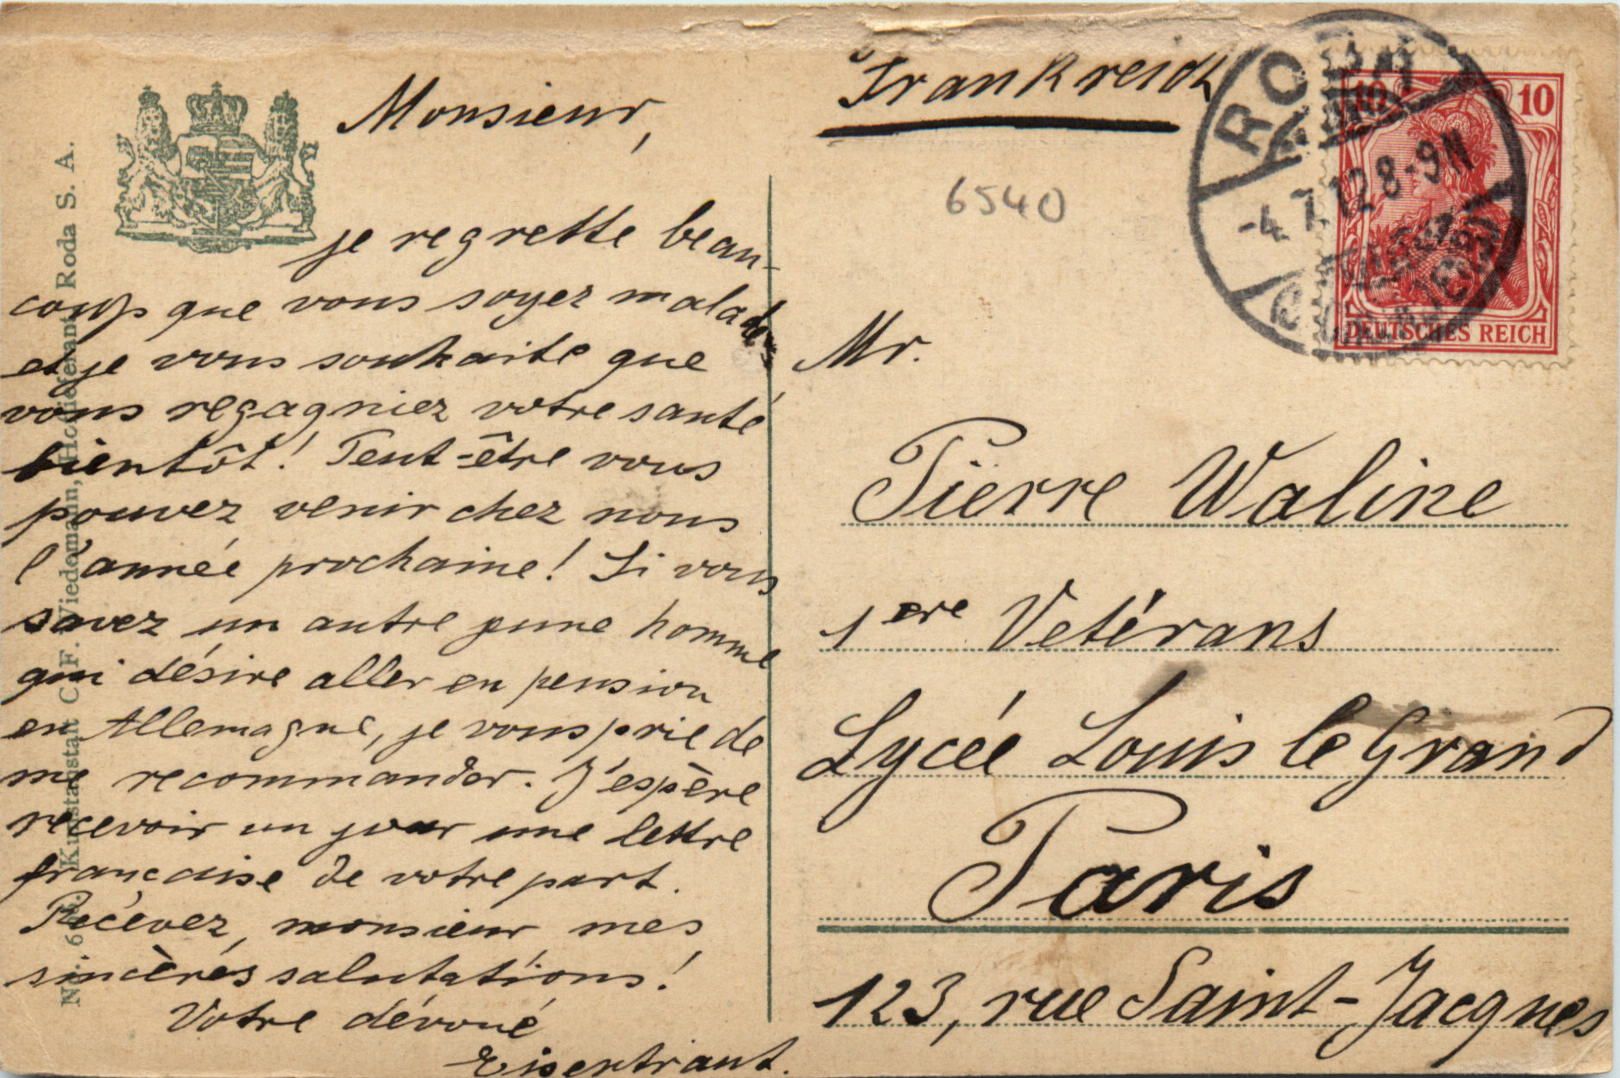 Monsieur,
je regrette beau-
coup que vous soyez malade,
et je vous souhaite que
vous regagniez votre santé
bientôt! Peut-être vous
pouvez venir chez nous
l'année prochaine! Si vous
savez un autre jeune homme
qui désire aller en pension
en Allemagne, je vous prie de
me recommander. J'espère
recevoir un jour une lettre
française de votre part.
Recevez, monsieur mes
sincères salutations!
Votre dévoué
Eisentraut.
Kunstanstalt C. F. Wiedemann, Hoflieferant, Roda S. A.
Frankreich
6540
RODA
-4.7.12 8-9N
10
10
DEUTSCHES REICH
Mr.
Pierre Waline
1ere Vetérans
Lycée Louis le Grand
Paris
123, rue Saint-Jacques